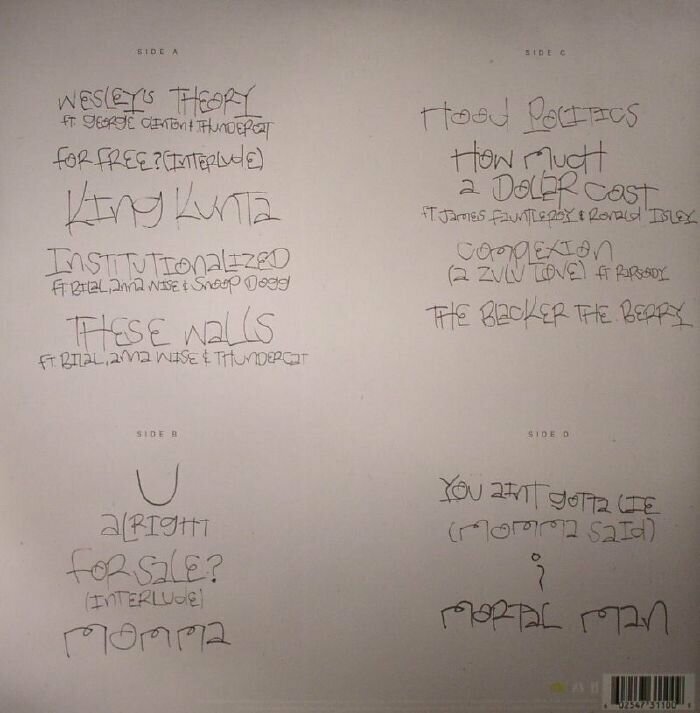 SIDE A
WESLEY'S THEORY
FT GEORGE CLINTON & THUNDERCAT
FOR FREE? (INTERLUDE)
KING KUNTA
INSTITUTIONALIZED
FT BILAL, ANNA WISE & SNOOP DOGG
THESE WALLS
FT. BILAL, ANNA WISE & THUNDERCAT
SIDE B
U
ALRIGHT
FOR SALE?
(INTERLUDE)
MOMMA
SIDE C
HOOD POLITICS
HOW MUCH
A DOLLAR COST
FT. JAMES FAUNTLEROY & RONALD ISLEY
COMPLEXION
(A ZULU LOVE) FT RAPSODY
THE BLACKER THE BERRY
SIDE D
YOU AINT GOTTA LIE
(MOMMA SAID)
i
MORTAL MAN
02547 31100